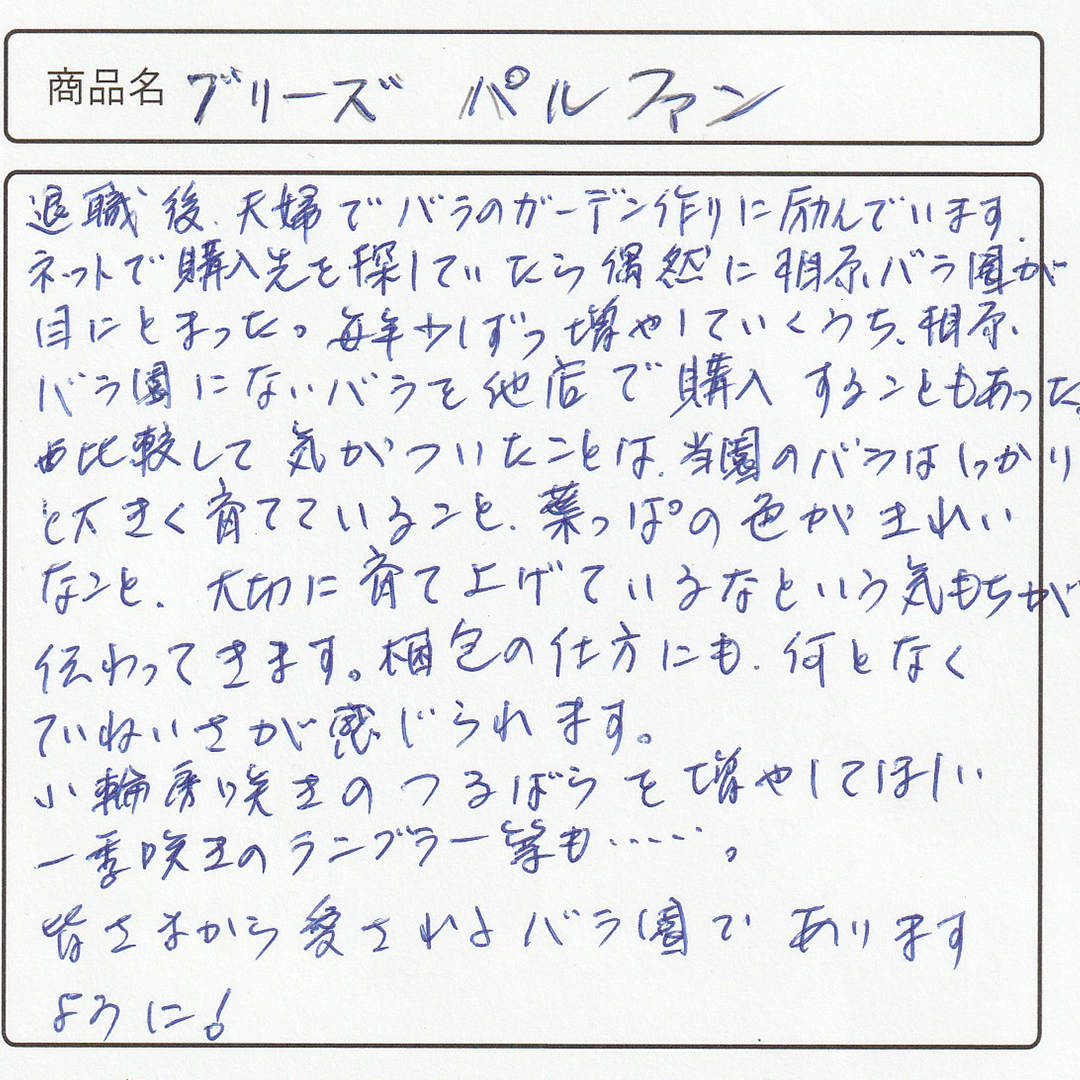 商品名 ブリーズ パルファン
退職後、夫婦でバラのガーデン作りに励んでいます.
ネットで購入先を探していたら偶然に相原バラ園が
目にとまった。毎年少しずつ増やしていくうち、相原
バラ園にないバラを他店で購入することもあった。
比較して気がついたことは、当園のバラはしっかり
と大きく育てていること、葉っぱの色がきれい
なこと、大切に育て上げているなという気もちが
伝わってきます。梱包の仕方にも、何となく
ていねいさが感じられます。
小輪房咲きのつるばらを増やしてほしい
一季咲きのランブラー等も‥‥‥。
皆さまから愛されるバラ園であります
ように!